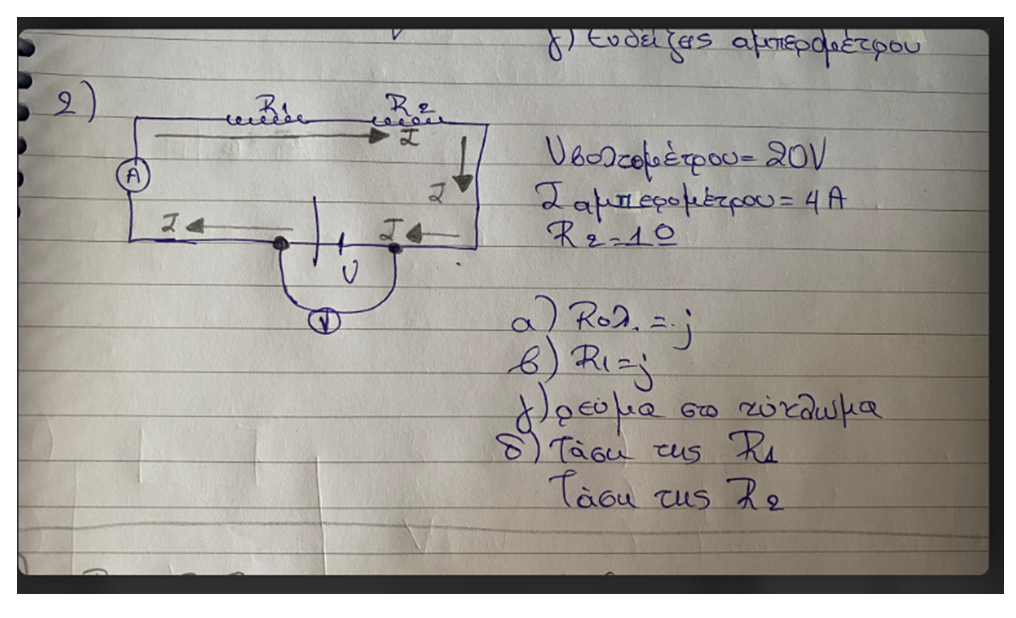 γ) Ενδείξεις αμπερομέτρου
2)
R1 R2
I
A
I
I I
V
V
Vβολτομέτρου = 20V
I αμπερομέτρου = 4A
R2 = 1Ω
α) Rολ. = ;
β) R1 = ;
γ) ρεύμα στο κύκλωμα
δ) Τάση της R1
Τάση της R2